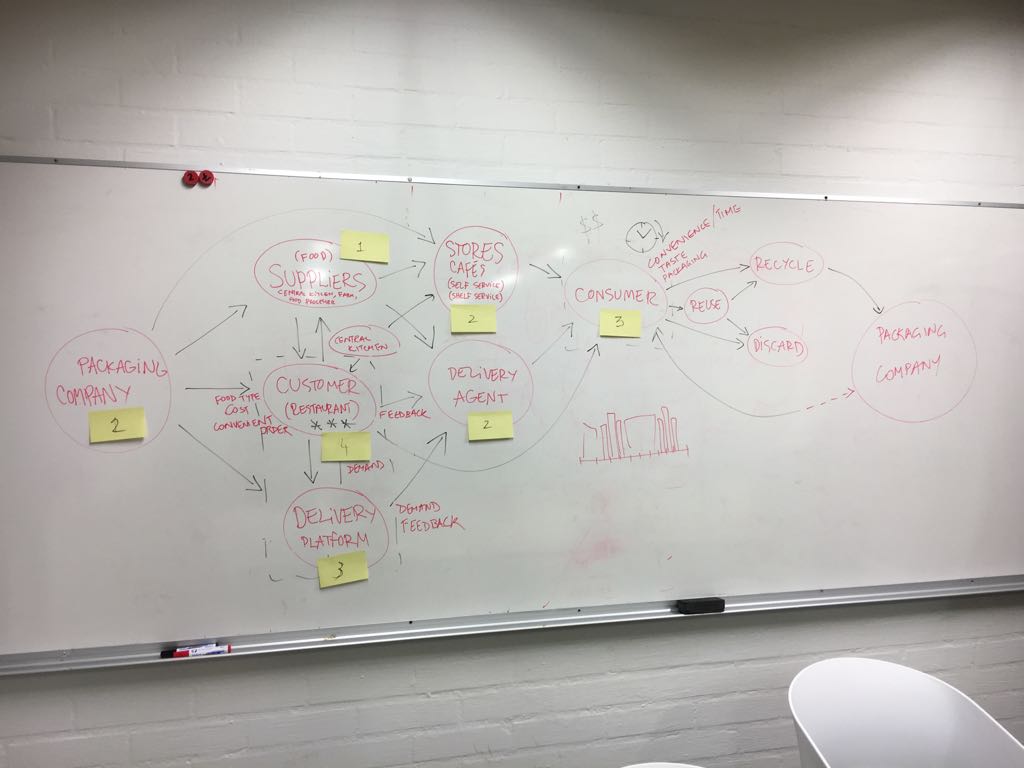 PACKAGING
COMPANY
2
(FOOD)
SUPPLIERS
CENTRAL KITCHEN, FARM,
FOOD PROCESSOR
1
CENTRAL
KITCHEN
FOOD TYPE
COST
CONVENIENT
ORDER
CUSTOMER
(RESTAURANT)
***
4
FEEDBACK
DEMAND
DELIVERY
PLATFORM
3
DEMAND
FEEDBACK
STORES
CAFÉS
(SELF SERVICE)
(SHELF SERVICE)
2
DELIVERY
AGENT
2
$$
CONVENIENCE/TIME
TASTE
PACKAGING
CONSUMER
3
REUSE
RECYCLE
DISCARD
PACKAGING
COMPANY